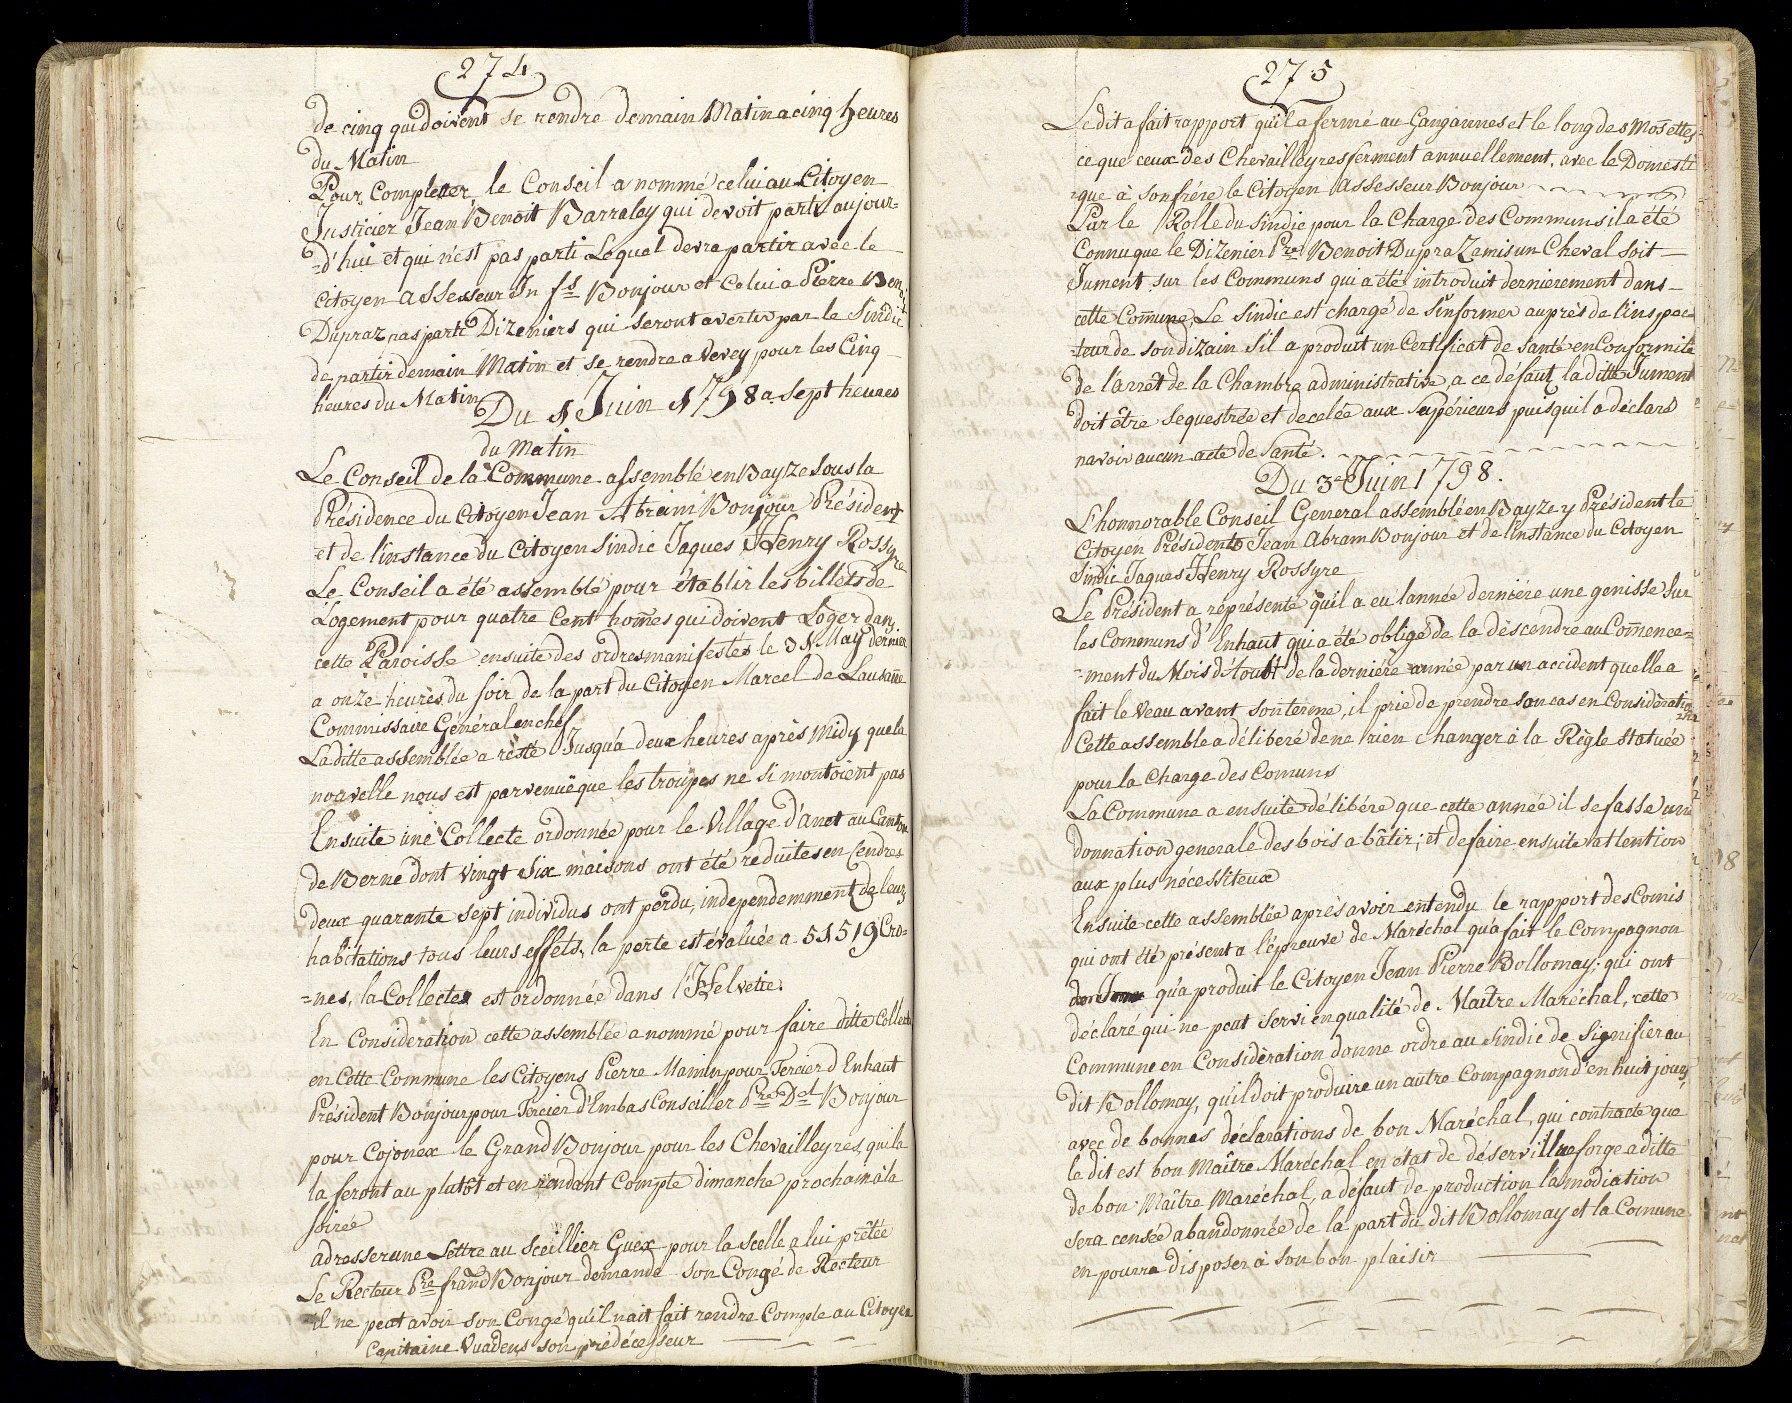 274
de cinq qui doivent se rendre demain Matin a cinq heures
du Matin
Pour Completter, le Conseil a nommé celui au Citoyen
Justicier Jean Benoit Barraley qui devoit parti aujour=
=d'hui et qui n'est pas parti Lequel devra partir avec le
citoyen assesseur Jn fs Bonjour et Celui a Pierre Ben
Dupraz pas parti Dizeniers qui seront avertis par le Sindic
de partir demain Matin et se rendre a Vevey pour les Cinq
heures du Matin
Du 1 Juin 1798 a Sept heures
du Matin
Le Conseil de la Commune assemblé en Bayze sous la
Présidence du Citoyen Jean Abram Bonjour Président
et de l'instance du Citoyen Sindic Jaques Henry Rossyre
Le Conseil a été assemblé pour établir les billets de
Logement pour quatre Cent hom̄es qui doivent Loger dans
cette Paroisse ensuite des ordres manifestes le 31 May dernier
a onze heures du soir de la part du Citoyen Marcel de Lausan̄e
Commissaire Général en chef
La ditte assemblée a resté Jusqu'a deux heures après Midy que la
nouvelle nous est parvenuë que les troupes ne si montoient pas
Ensuite une Collecte ordonnée pour le Village d'anet au Canton
de Berne dont Vingt Six maisons ont été reduites en Cendres
deux quarante sept individus ont perdu, independemment de leurs
habitations tous leurs effets, la perte est évaluée a 51519 Cro=
=nes, la Collecte est ordonnée dans l'Helvetie.
En Consideration cette assemblée a nommé pour faire ditte Collecte
en Cette Commune les Citoyens Pierre Mamin pour Tercier d'Enhaut
Président Bonjour pour Tercier d'Embas Conseiller Pre Del Bonjour
pour Cojonex le Grand Bonjour pour les Chevailleyres, qui la
la feront au plutôt et en rendant Compte dimanche prochain à la
soirée
adresser une Lettre au Sceillier Guex pour la Scelle a lui prêtée
Le Recteur Pre frand Bonjour demande son Congé de Recteur
il ne peut avoir son Congé qu'il n'ait fait rendre Compte au Citoyen
Capitaine Vuadens son prédécesseur
275
Le dit a fait rapport qu'il a fermé au Gangannes et le long des Mosettes
ce que ceux des Chevailleyres ferment annuellement, avec le Domesti
=que à son frére le Citoyen Assesseur Bonjour
Par le Rolle du Sindic pour la Charge des Communs il a été
Connu que le Dizenier Pre Benoit Dupraz a mis un Cheval soit
Jument sur les Communs qui a été introduit dernierement dans
cette Com̄une, Le Sindic est chargé de s'informer auprès de l'inspec=
=teur de son dizain s'il a produit un Certificat de Santé en Conformité
de l'arrêt de la Chambre administrative, a ce défaut la ditte Jument
doit être Sequestrée et decelée aux Supérieurs puisqu'il a déclaré
n'avoir aucun acte de Santé.
Du 3e Juin 1798.
L'honnorable Conseil General assemblé en Bayze y Président le
Citoyen Président Jean Abram Bonjour et de l'instance du Citoyen
Sindic Jaques Henry Rossyre
Le Président a représenté qu'il a eu l'année derniére une genisse sur
les Communs d'Enhaut qui a été obligé de la déscendre au Com̄ence=
=ment du Mois d'Aoust de la derniére année par un accident quelle a
fait le Veau avant son terme, il prie de prendre son cas en Considération
Cette assemble a délibéré de ne rien changer à la Règle Statuée
pour la Charge des Comuns
La Commune a ensuite délibére que cette année il se fasse une
donnation generale des bois a bâtir; et de faire ensuite attention
aux plus nécessiteux
Ensuite cette assemblée après avoir entendu le rapport des Comis
qui ont été présent a l'épreuve de Maréchal qu'a fait le Compagnon
qu'a produit le Citoyen Jean Pierre Bollomay; qui ont
déclaré qui ne peut servi en qualité de Maître Maréchal, cette
Commune en Considération donne ordre au Sindic de Signifier au
dit Bollomay, qu'il doit produire un autre Compagnon d'en huit jours
avec de bonnes déclarations de bon Maréchal, qui contracte que
le dit est bon Maître Maréchal en état de déservir la forge a ditte
de bon Maître Maréchal, a défaut de production la modiation
sera censée abandonnée de la part du dit Bollomay et la Comune
en pourra disposer à son bon plaisir